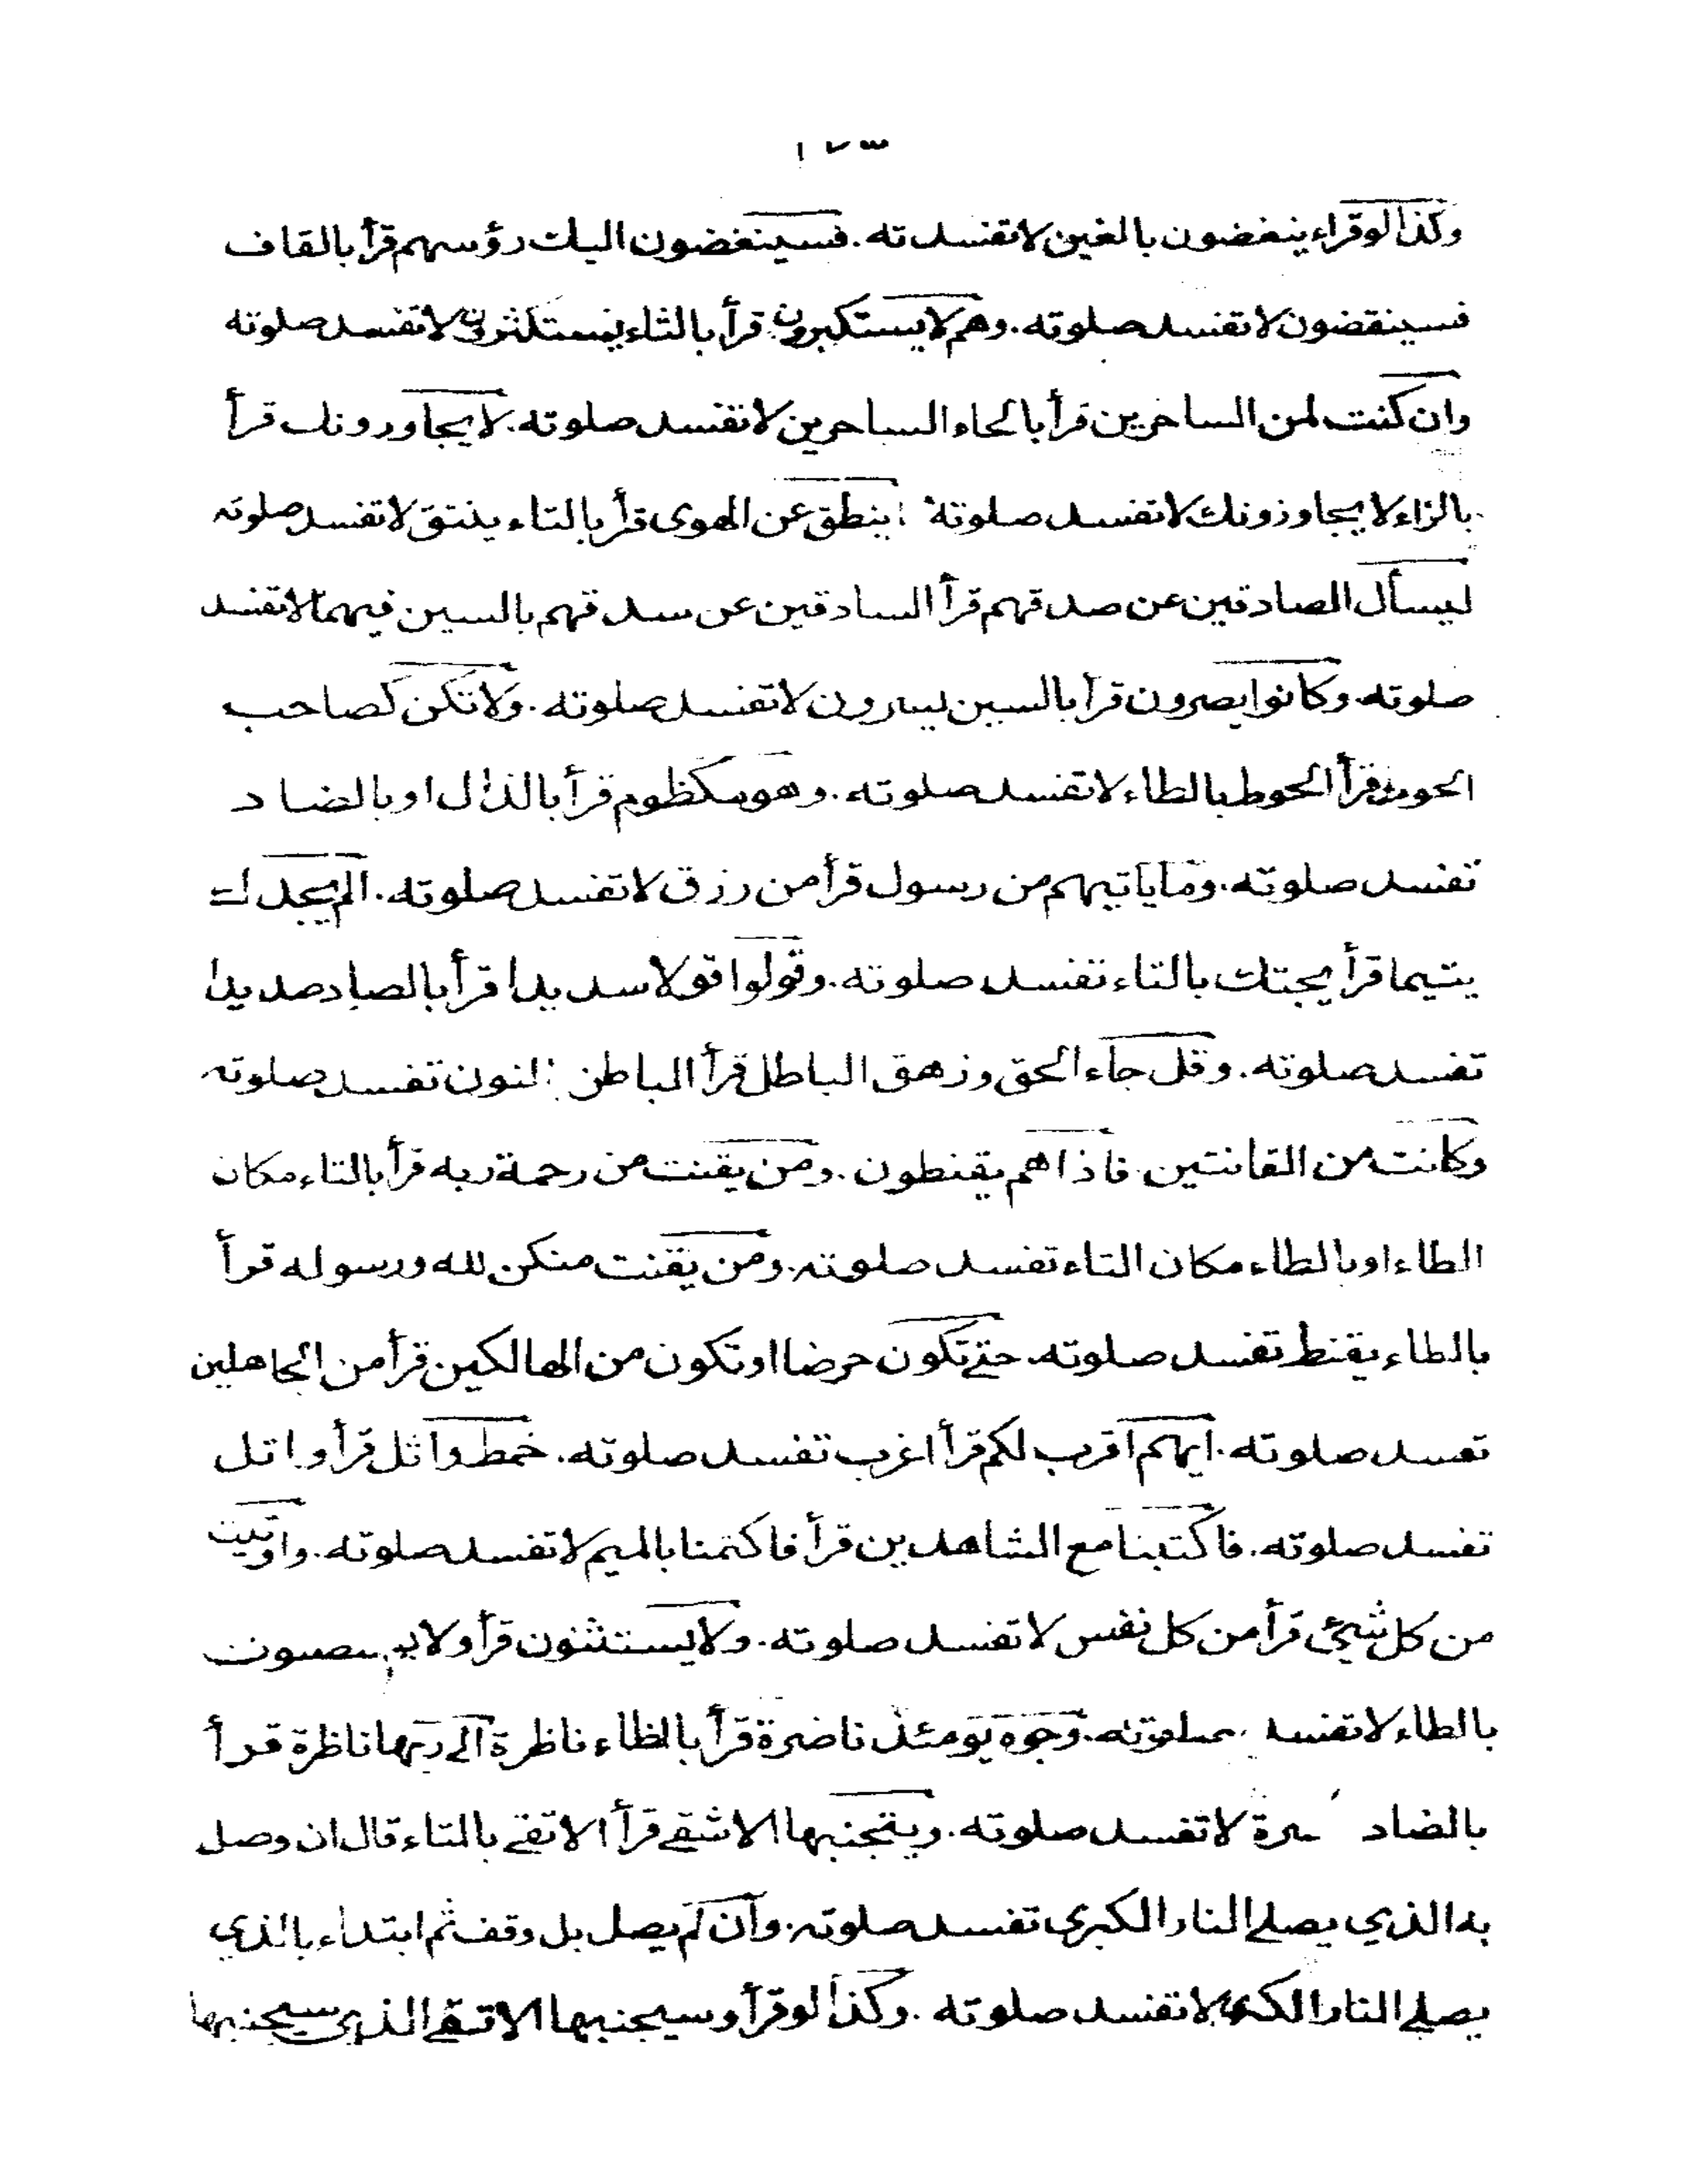 ١٧٣
وكذا لو قراء ينغضون بالغين لا تفسد ته. فسينغضون اليك رؤسهم قرأ بالقاف
فسينقضون لا تفسد صلوته. وهم لا يستكبرون قرأ بالثاء يستكثرون لا تفسد صلوته
وان كنت لمن الساخرين قرأ بالحاء الساحرين لا تفسد صلوته. لا يجاورونك قرأ
بالزاء لا يجاوزونك لا تفسد صلوته ينطق عن الهوى قرأ بالتاء ينتق لا تفسد صلوته
ليسأل الصادقين عن صدقهم قرأ السادقين عن سدقهم بالسين فيهما لا تفسد
صلوته. وكانوا يصرون قرأ بالسين يسرون لا تفسد صلوته. ولا تكن كصاحب
الحوت قرأ الحوط بالطاء لا تفسد صلوته. وهو مكظوم قرأ بالذال او بالضاد
تفسد صلوته. وما ياتيهم من رسول قرأ من رزق لا تفسد صلوته. الم يجدك
يتيما قرأ يجتك بالتاء تفسد صلوته. وقولوا قولا سديدا قرأ بالصاد صديدا
تفسد صلوته. وقل جاء الحق وزهق الباطل قرأ الباطن بالنون تفسد صلوته
وكانت من القانتين فاذا هم يقنطون. ومن يقنت من رحمة ربه قرأ بالتاء مكان
الطاء او بالطاء مكان التاء تفسد صلوته. ومن يقنت منكن لله ورسوله قرأ
بالطاء يقنط تفسد صلوته. حتى تكون حرضا او تكون من الهالكين قرأ من الجاهلين
تفسد صلوته. ايهم اقرب لكم قرأ اغرب تفسد صلوته. خمط واثل قرأ واتل
تفسد صلوته. فاكتبنا مع الشاهدين قرأ فاكتمنا بالميم لا تفسد صلوته. واوتيت
من كل شئ قرأ من كل نفس لا تفسد صلوته. ولا يستثنون قرأ ولا
بالطاء لا تفسد صلوته. وجوه يومئذ ناضرة قرأ بالظاء ناظرة الى ربها ناظرة قرأ
بالضاد لا تفسد صلوته. ويتجنبها الاشقى قرأ الاتقى بالتاء قال ان وصل
به الذي يصلى النار الكبرى تفسد صلوته. وان لم يصل بل وقف ثم ابتداء بالذي
يصلى النار الكبرى لا تفسد صلوته. وكذا لو قرأ وسيجنبها الاتقى الذي سيجنبها